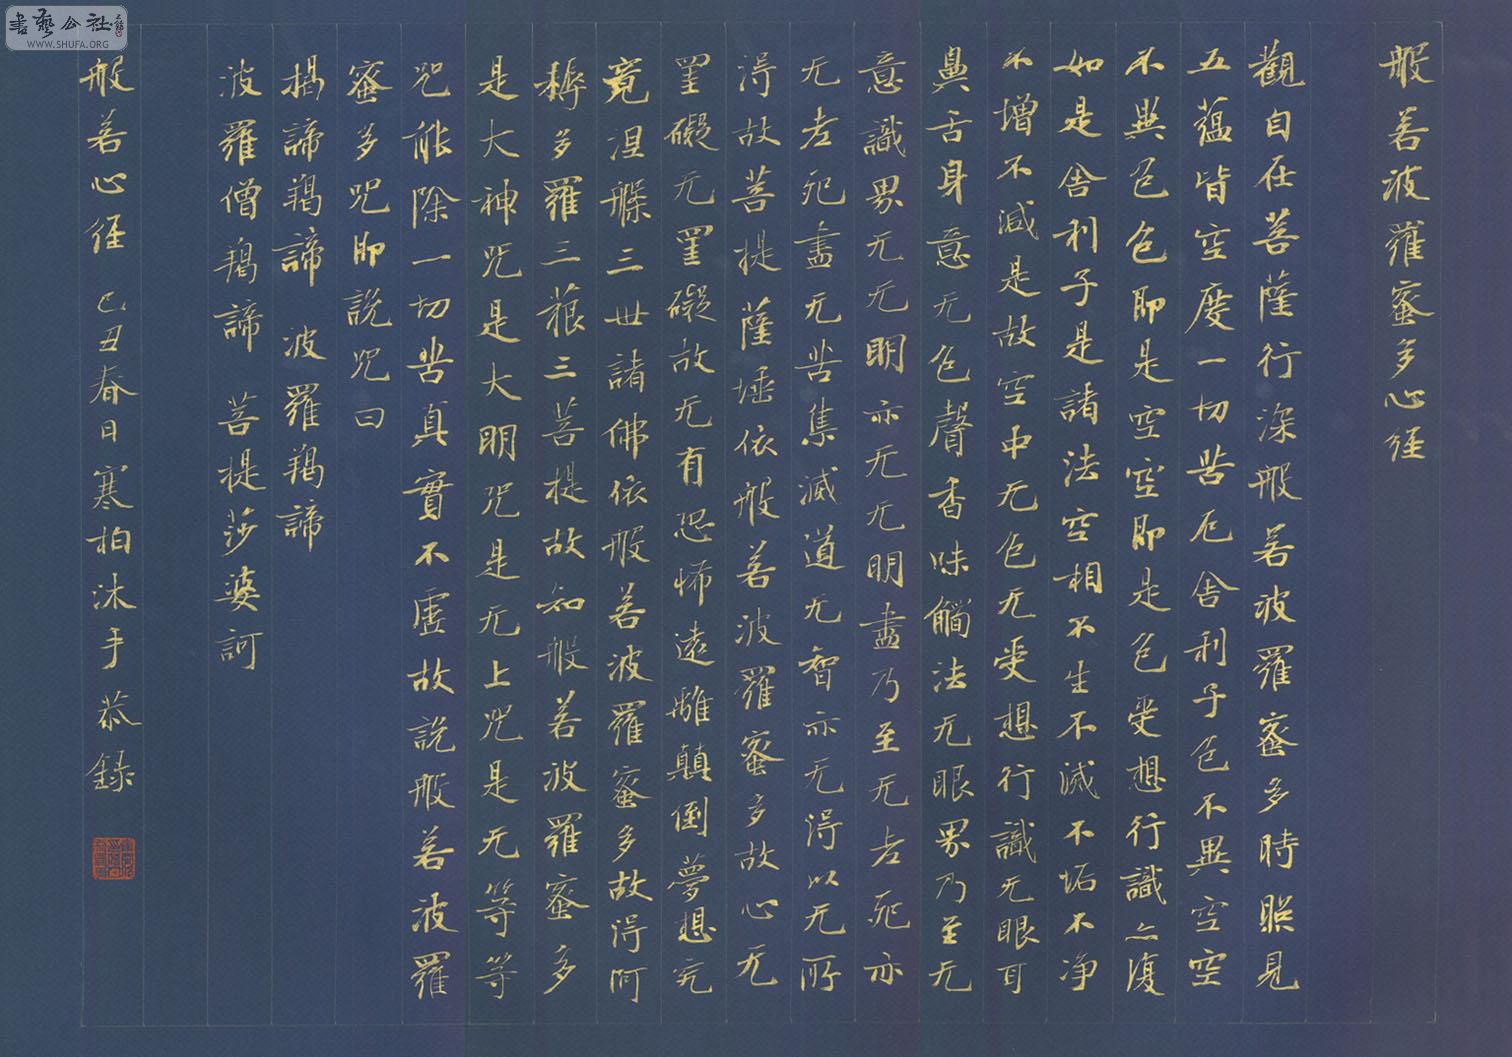 般若波羅蜜多心経
觀自在菩薩行深般若波羅蜜多時照見
五蘊皆空度一切苦厄舍利子色不異空空
不異色色即是空空即是色受想行識亦復
如是舍利子是諸法空相不生不滅不垢不净
不增不減是故空中无色无受想行識无眼耳
鼻舌身意无色聲香味觸法无眼界乃至无
意識界无无明亦无无明盡乃至无老死亦
无老死盡无苦集滅道无智亦无得以无所
得故菩提薩埵依般若波羅蜜多故心无
罣礙无罣礙故无有恐怖遠離顛倒夢想究
竟涅槃三世諸佛依般若波羅蜜多故得阿
耨多羅三藐三菩提故知般若波羅蜜多
是大神咒是大明咒是无上咒是无等等
咒能除一切苦真實不虛故說般若波羅
蜜多咒即說咒曰
揭諦羯諦 波羅羯諦
波羅僧羯諦 菩提莎婆訶
般若心經 己丑春日寒柏沐手恭錄
書藝公社
WWW.SHUFA.ORG